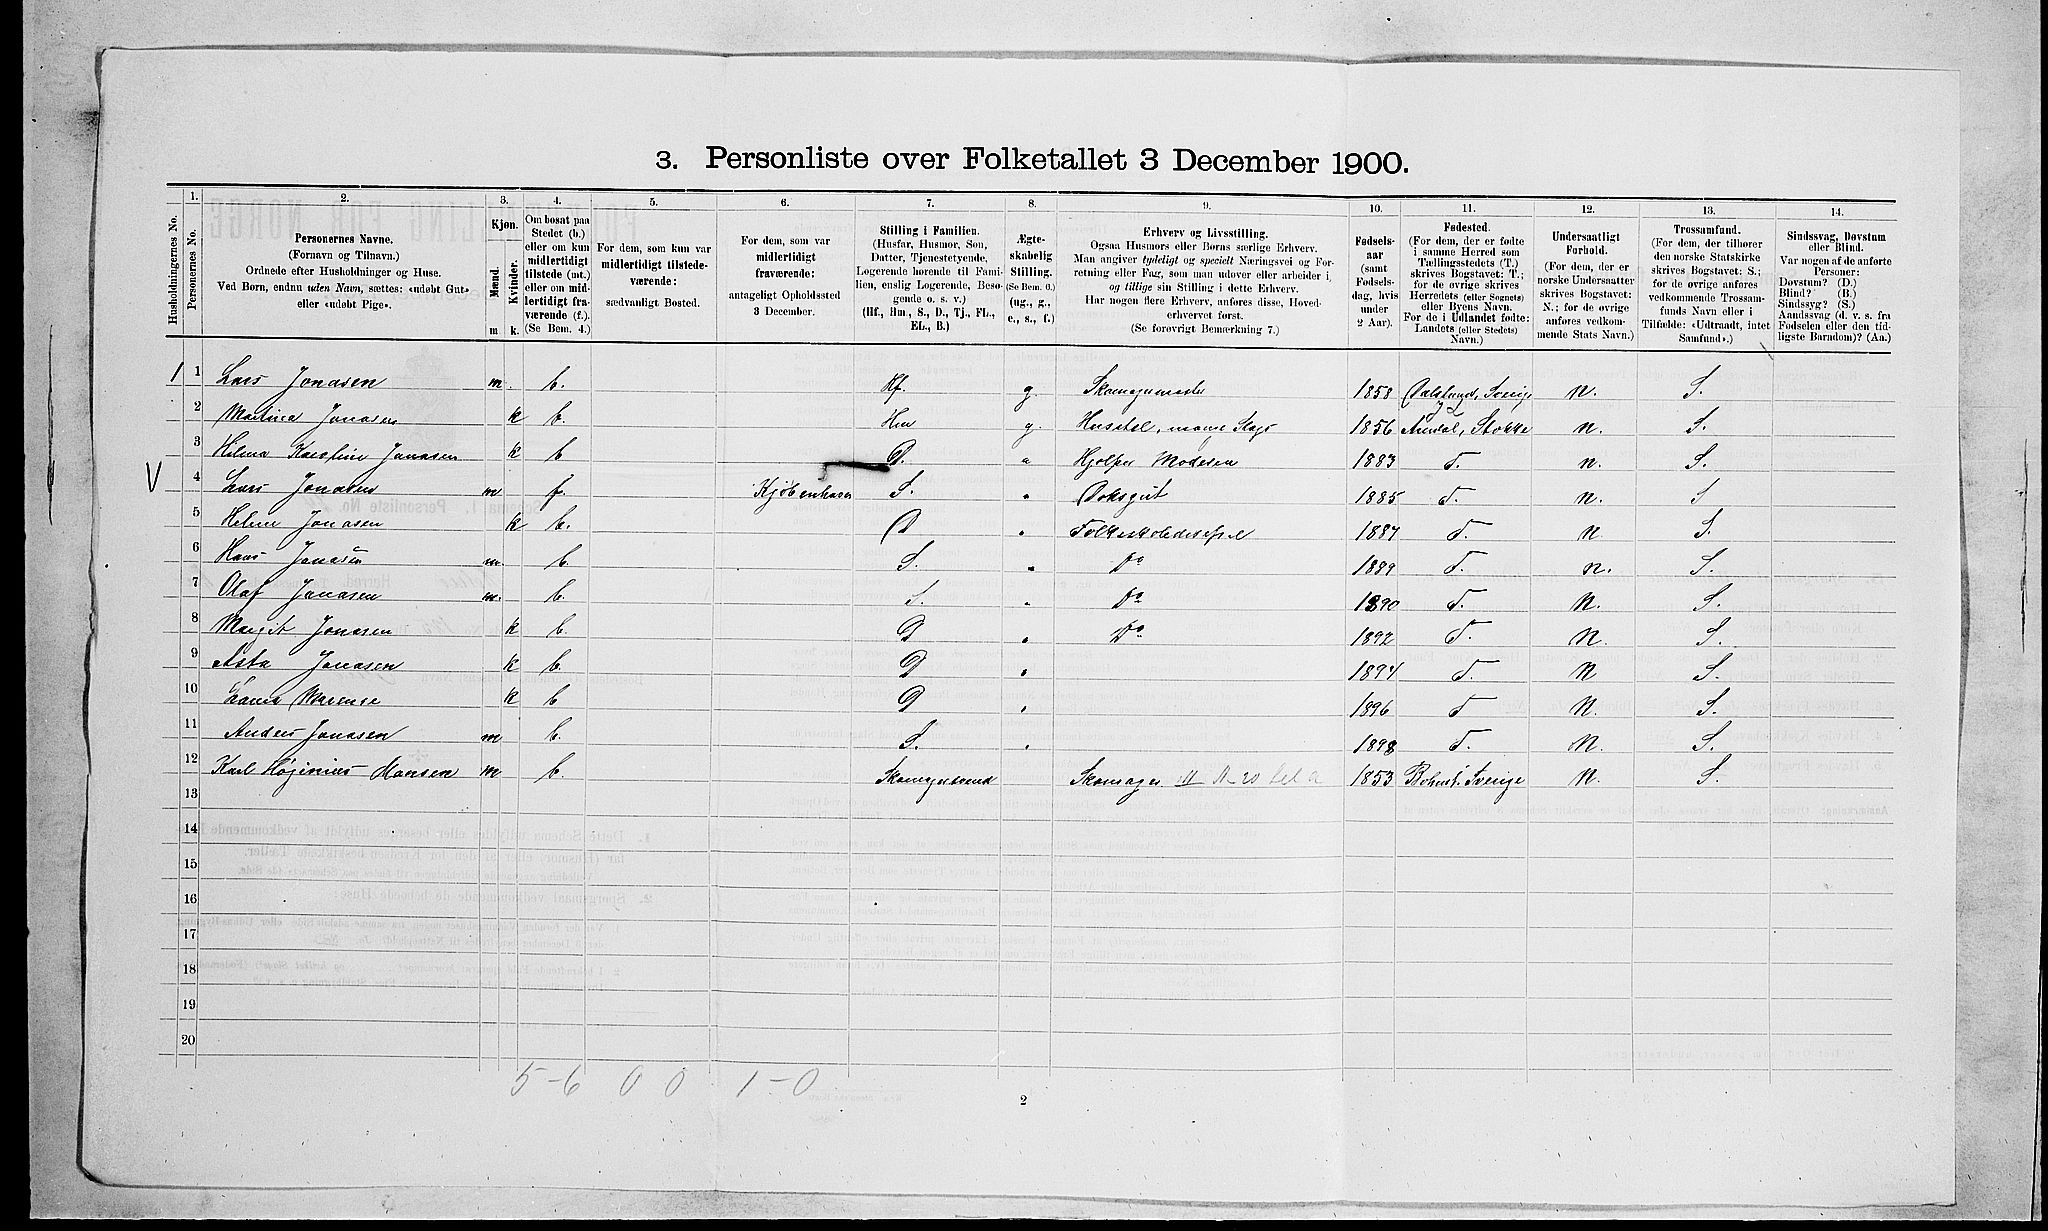 3. Personliste over Folketallet 3 December 1900.
Husholdningernes No.
1.
Personernes No.
2.
Personernes Navne.
(Fornavn og Tilnavn.)
Ordnede efter Husholdninger og Huse.
Ved Børn, endnu uden Navn, sættes: «udøbt Gut»
eller «udøbt Pige».
3.
Kjøn.
Mænd.
Kvinder.
m.
k.
4.
Om bosat paa
Stedet (b.)
eller om kun
midlertidigt
tilstede (mt.)
eller om mid-
lertidigt fra-
værende (f.).
(Se Bem. 4.)
5.
For dem, som kun var
midlertidigt tilstede-
værende:
sædvanligt Bosted.
6.
For dem, som var
midlertidigt
fraværende:
antageligt Opholdssted
3 December.
7.
Stilling i Familien.
(Husfar, Husmor, Søn,
Datter, Tjenestetyende,
Logerende hørende til Fami-
lien, enslig Logerende, Besø-
gende o. s. v.)
(Hf., Hm., S., D., Tj., FL.,
EL., B.)
8.
Ægte-
skabelig
Stilling.
(Se Bem. 6.)
(ug., g.,
e., s., f.)
9.
Erhverv og Livsstilling.
Ogsaa Husmors eller Børns særlige Erhverv.
Man angiver tydeligt og specielt Næringsvei og For-
retning eller Fag, som man udøver eller arbeider i,
og tillige sin Stilling i dette Erhverv.
Har nogen flere Erhverv, anføres disse, Hoved-
erhvervet først.
(Se forøvrigt Bemærkning 7.)
10.
Fødsels-
aar
(samt
Fødsels-
dag, hvis
under
2 Aar).
11.
Fødested.
(For dem, der er fødte
i samme Herred som
Tællingsstedets (T.)
skrives Bogstavet: T.;
for de øvrige skrives
Herredets (eller Sognets)
eller Byens Navn.
For de i Udlandet fødte:
Landets (eller Stedets)
Navn.)
12.
Undersaatligt
Forhold.
(For dem, der er
norske Undersaatter
skrives Bogstavet:
N.; for de øvrige
anføres vedkom-
mende Stats Navn.)
13.
Trossamfund.
(For dem, der tilhører
den norske Statskirke
skrives Bogstavet: S.;
for de øvrige anføres
vedkommende Trossam-
funds Navn eller i
Tilfælde: «Udtraadt, intet
Samfund».)
14.
Sindssvag, Døvstum
eller Blind.
Var nogen af de anførte
Personer:
Døvstum? (D.)
Blind? (B.)
Sindssyg? (S.)
Aandssvag (d. v. s. fra
Fødselen eller den tid-
ligste Barndom)? (Aa.)
1 1 Lars Jonasen m. b. Hf. g. Skomagermester 1858 Sverige N. S.
2 Martina Jonasen k b. Hm g. Husstel, 1856 Stokke N. S.
3 Hilma Karoline Jonasen k b D. Hjelper Moderen 1883 T. N. S.
V 4 Lars Jonasen m f. Kjøbenhavn S. Doksgut 1885 T. N. S
5 Helene Jonasen k b. D Folkeskoledeltagelse 1887 T. N S.
6 Hans Jonasen m. b. S. Do 1889 T. N. S.
7 Olaf Jonasen m. b. S. Do 1890 T. N. S.
8 Margit Jonasen k b. D Do 1892 T. N. S.
9 Asta Jonasen k b. D 1894 T. N S.
10 k b D 1896 T N. S.
11 Anders Jonasen m b. S. 1898 T. N. S.
12 Karl Hansen m b. Skomagersvend Skomager 1853 Sverige N. S.
13
14
15
16
17
18
19
20
5-6 0 0 1-0
2